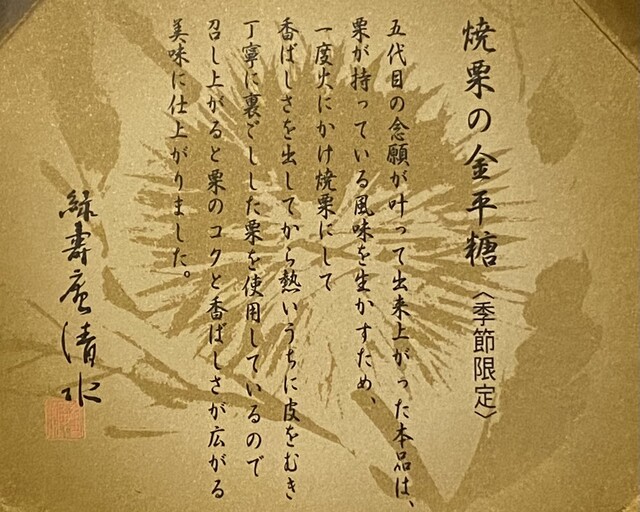 焼栗の金平糖〈季節限定〉
五代目の念願が叶って出来上がった本品は、
栗が持っている風味を生かすため、
一度火にかけ焼栗にして
香ばしさを出してから熱いうちに皮をむき
丁寧に裏ごしした栗を使用しているので
召し上がると栗のコクと香ばしさが広がる
美味に仕上がりました。
緑寿庵清水